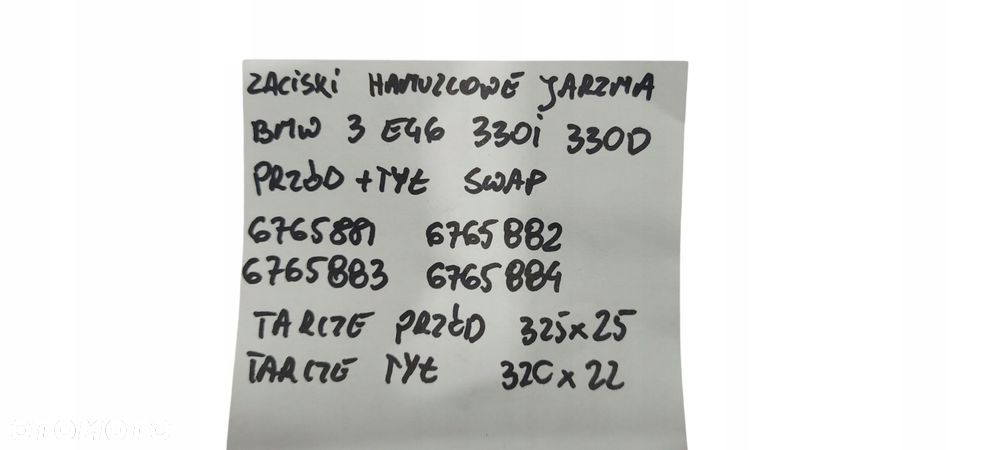 ZACISKI HAMULCOWE JARZMA
BMW 3 E46 330i 330D
PRZÓD + TYŁ SWAP
6765881 6765882
6765883 6765884
TARCZE PRZÓD 325x25
TARCZE TYŁ 320x22
OTOMOTO